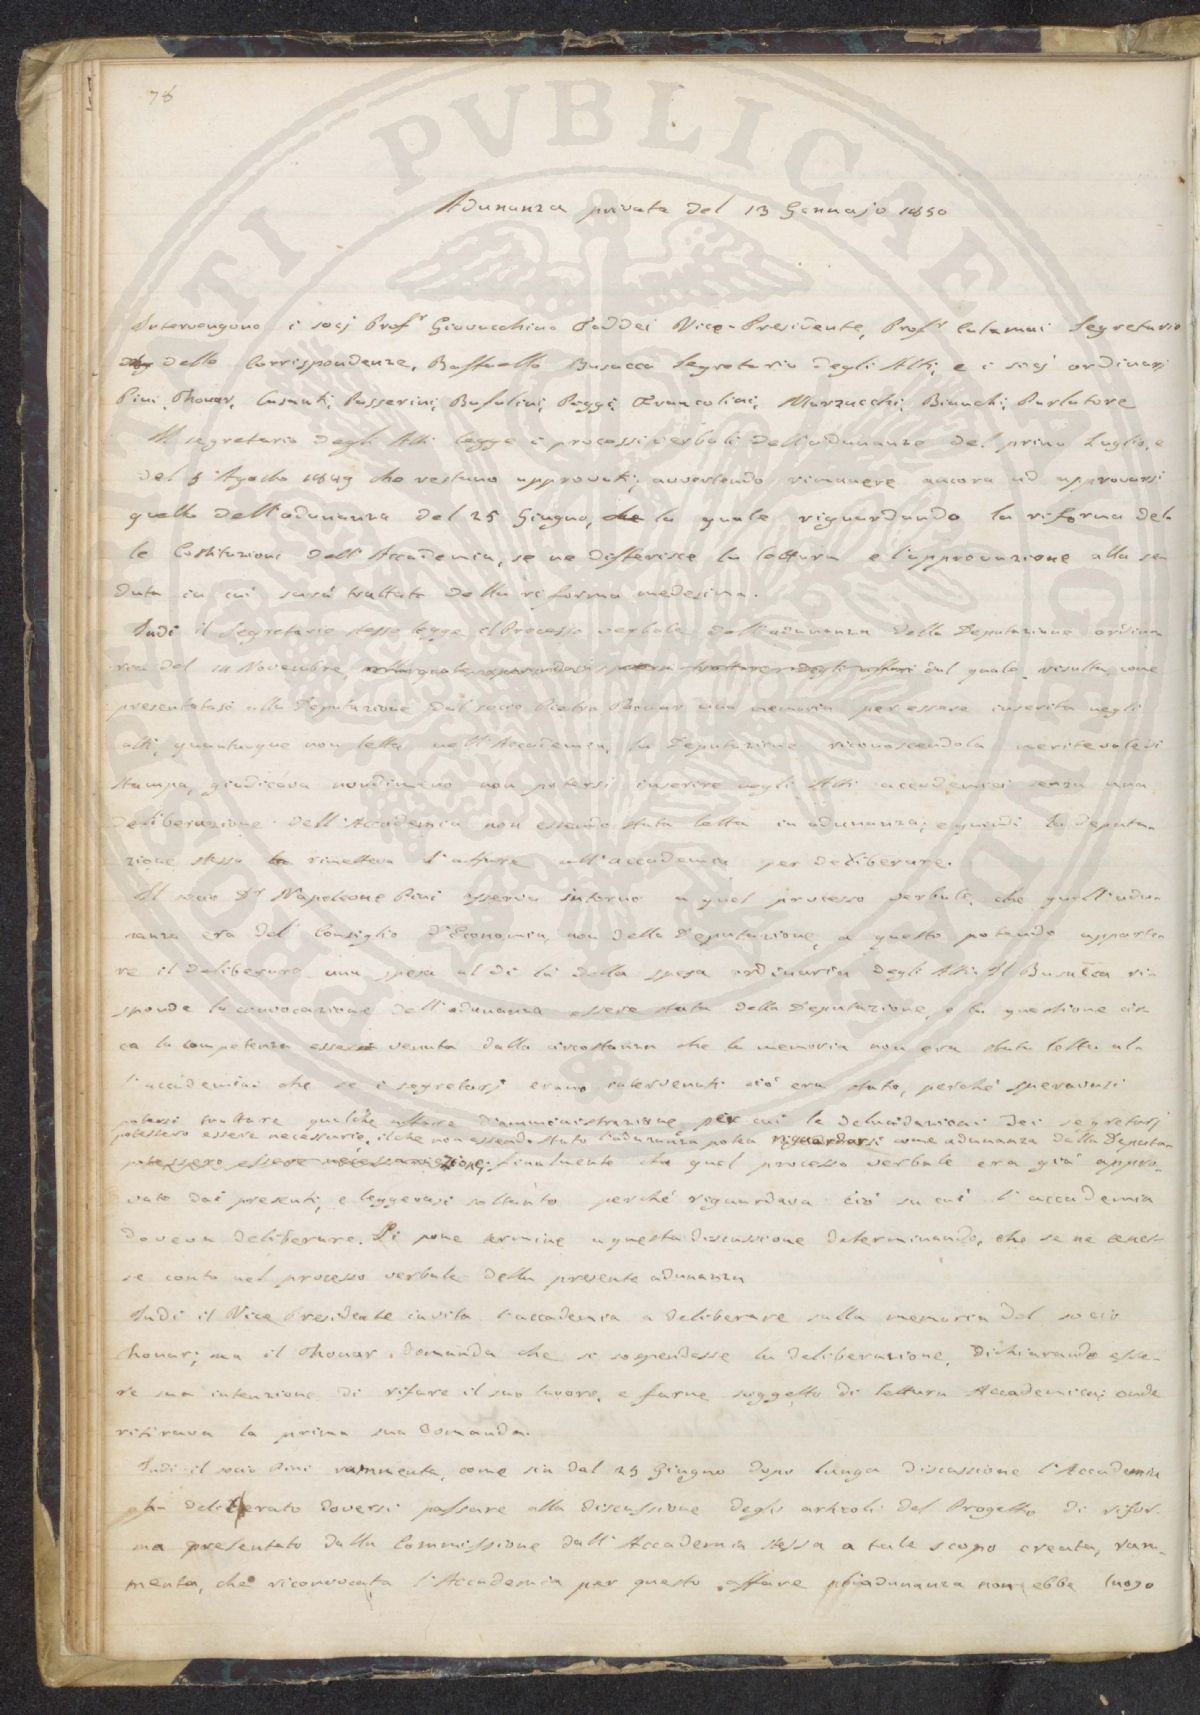 78
Adunanza privata del 13 Gennajo 1850
Intervengono i socj Prof.r Giovacchino Taddei Vice-Presidente, Prof.r Calamai Segretario
delle Corrispondenze, Raffaello Busacca Segretario degli Atti, e i socj ordinarj
Pini, Thouar, Casanti, Passerini, Bufalini, Poggi, Francolini, Marzucchi, Bianchi, Parlatore
Il segretario degli Atti legge i processi verbali dell'adunanze del primo Luglio, e
del 5 Agosto 1849 che restano approvati; avvertendo rimanere ancora ad approvarsi
quello dell'adunanza del 25 Giugno, che la quale riguardando la riforma del-
le Costituzioni dell'Accademia, se ne differisce la lettura e l'approvazione alla se-
duta in cui sarà trattato della riforma medesima.
Indi il Segretario stesso legge il Processo verbale dell'adunanza della Deputazione ordina-
ria del 14 Novembre, dal quale risulta, come
presentatasi alla Deputazione dal socio Pietro Thouar una memoria per essere inserita negli
atti, quantunque non letta nell'Accademia, la Deputazione riconoscendola meritevole di
stampa, giudicava nondimeno non potersi inserire negli Atti accademici senza una
deliberazione dell'Accademia non essendo stata letta in adunanza; e quindi la deputa-
zione stessa rimetteva l'affare all'accademia per deliberare.
Il socio D.r Napoleone Pini osserva intorno a quel processo verbale, che quell'adu-
nanza era del Consiglio d'Economia, non della Deputazione, a questo potendo apparte-
re il deliberare una spesa al di là della spesa ordinaria degli Atti. Il Busacca ri-
sponde la convocazione dell'adunanza essere stata della Deputazione, e la questione cir-
ca la competenza essersi venuta dalla circostanza che la memoria non era stata letta al-
l'accademia: che se i segretarj erano intervenuti ciò era stato, perché speravasi
potersi trattare qualche affare d'amministrazione per cui le delucidazioni dei segretarj
potessero essere necessarie, il che non essendo stato l'adunanza potea riguardarsi come adunanza della Deputa-
potessero essere necessarie zione; finalmente che quel processo verbale era già appro-
vato dai presenti, e leggevasi soltanto perché riguardava ciò su cui l'accademia
doveva deliberare. Si pone termine a questa discussione determinando, che se ne tenes-
se conto nel processo verbale della presente adunanza
Indi il Vice Presidente invita l'accademia a deliberare sulla memoria del socio
Thouar; ma il Thouar domanda che si sospendesse la deliberazione, dichiarando esse-
re sua intenzione di rifare il suo lavoro, e farne soggetto di lettura Accademica; onde
ritirava la prima sua domanda.
Indi il socio Pini rammenta, come sin dal 25 Giugno dopo lunga discussione l'Accademia
ha deliberato doversi passare alla discussione degli articoli del Progetto di rifor-
ma presentato dalla Commissione dall'Accademia stessa a tale scopo creata, ram-
menta, che riconvocata l'Accademia per questo affare adunanza non ebbe luogo